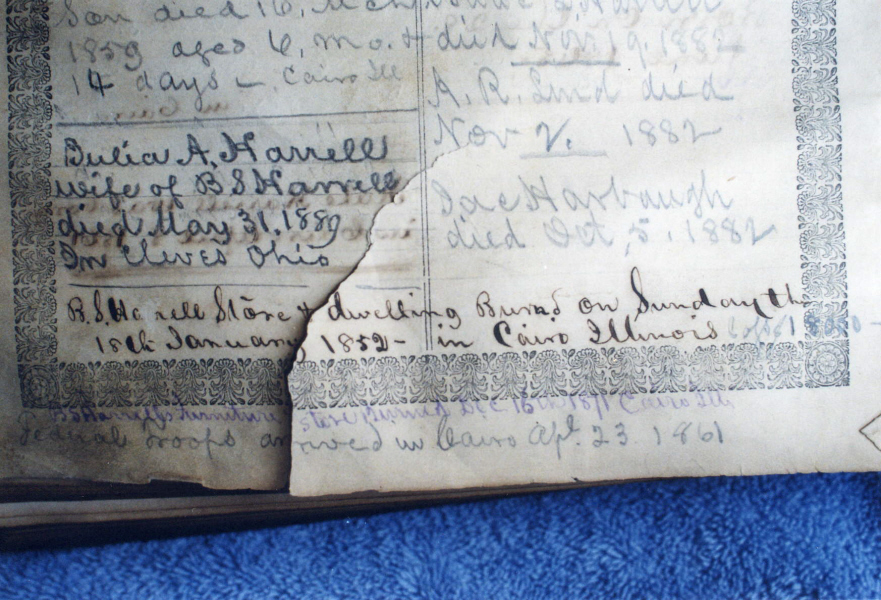 Son died 16, Mch
1859 aged 6, mo. &
14 days – Cairo Ill
Julia A. Harrell
wife of B S Harrell
died May 31, 1889
In Cleves Ohio
died Nov 19, 1882
A. R. Lind died
Nov 2. 1882
Jac Harbaugh
died Oct, 5, 1882
B. S. Harrell Store & dwelling Burnd on Sunday th
18th January 1852 – in Cairo Illinois
BS Harrell's Furniture store Burned Dec 16th 1871 Cairo Ills
Federal troops arrived in Cairo Apl. 23. 1861